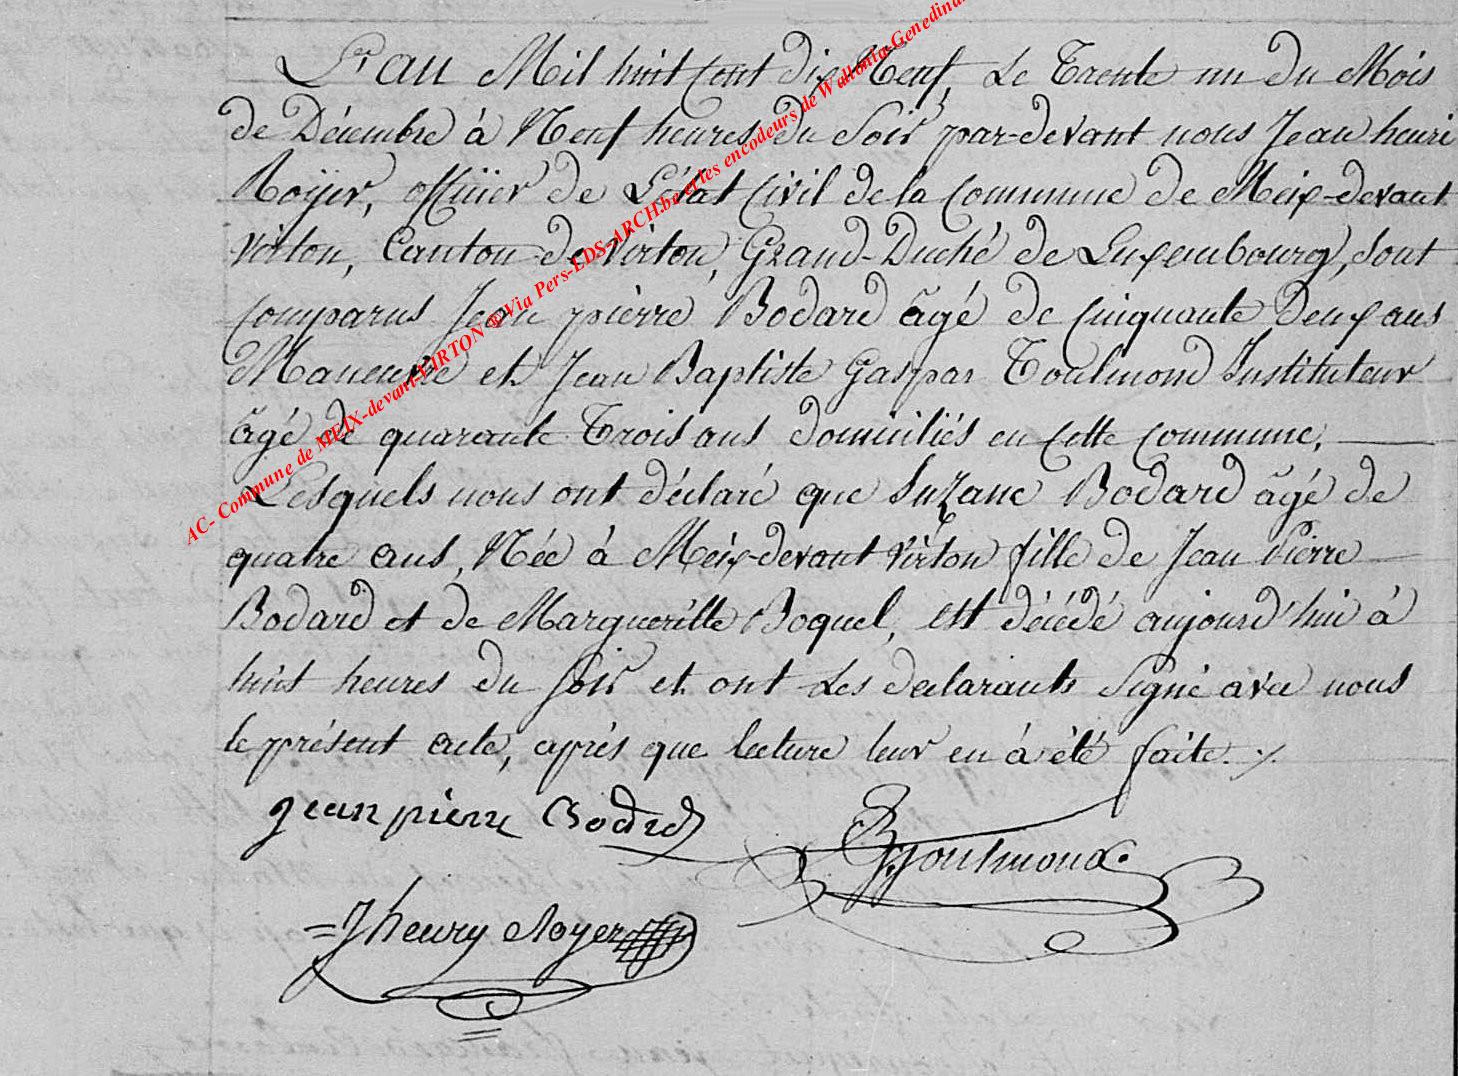 L'an Mil huit Cent dix Neuf, Le Trente un du Mois
de Décembre à Neuf heures du Soir par-devant nous Jean henri
Royer, officier de L'état Civil de la Commune de Meix-devant
virton, Canton de Virton, Grand-Duché de Luxembourg, sont
comparus Jean pièrre Bodard âgé de cinquante Deux ans
et Jean Baptiste Gaspar Toulmond Instituteur
âgé de quarante Trois ans domiciliés en Cette Commune,
Lesquels nous ont déclaré que Suzane Bodard âgé de
quatre ans, Née à Meix-devant virton fille de Jean Pierre
Bodard et de Margueritte Boquel, est décédé aujourd'hui à
huit heures du soir et ont Les declarants Signé avec nous
le présent acte, après que lecture leur en à été faite.
Jean pierre Bodard
JHenry Royer
AC- Commune de MEIX-devant-VIRTON ® Via Pers-LDS-ARCH.be et les encodeurs de Wallonia-Genedinal